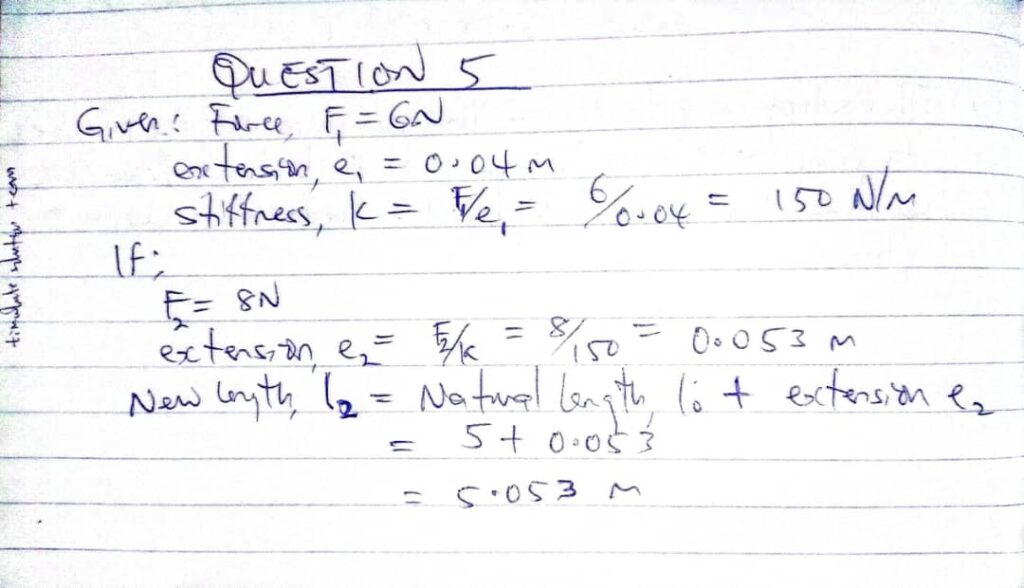 QUESTION 5
Given: Force, F₁ = 6N
extension, e₁ = 0.04 m
stiffness, k = F/e₁ = 6/0.04 = 150 N/m
If;
F₂ = 8N
extension, e₂ = F₂/k = 8/150 = 0.053 m
New length, l₂ = Natural length, l₀ + extension e₂
= 5 + 0.053
= 5.053 m